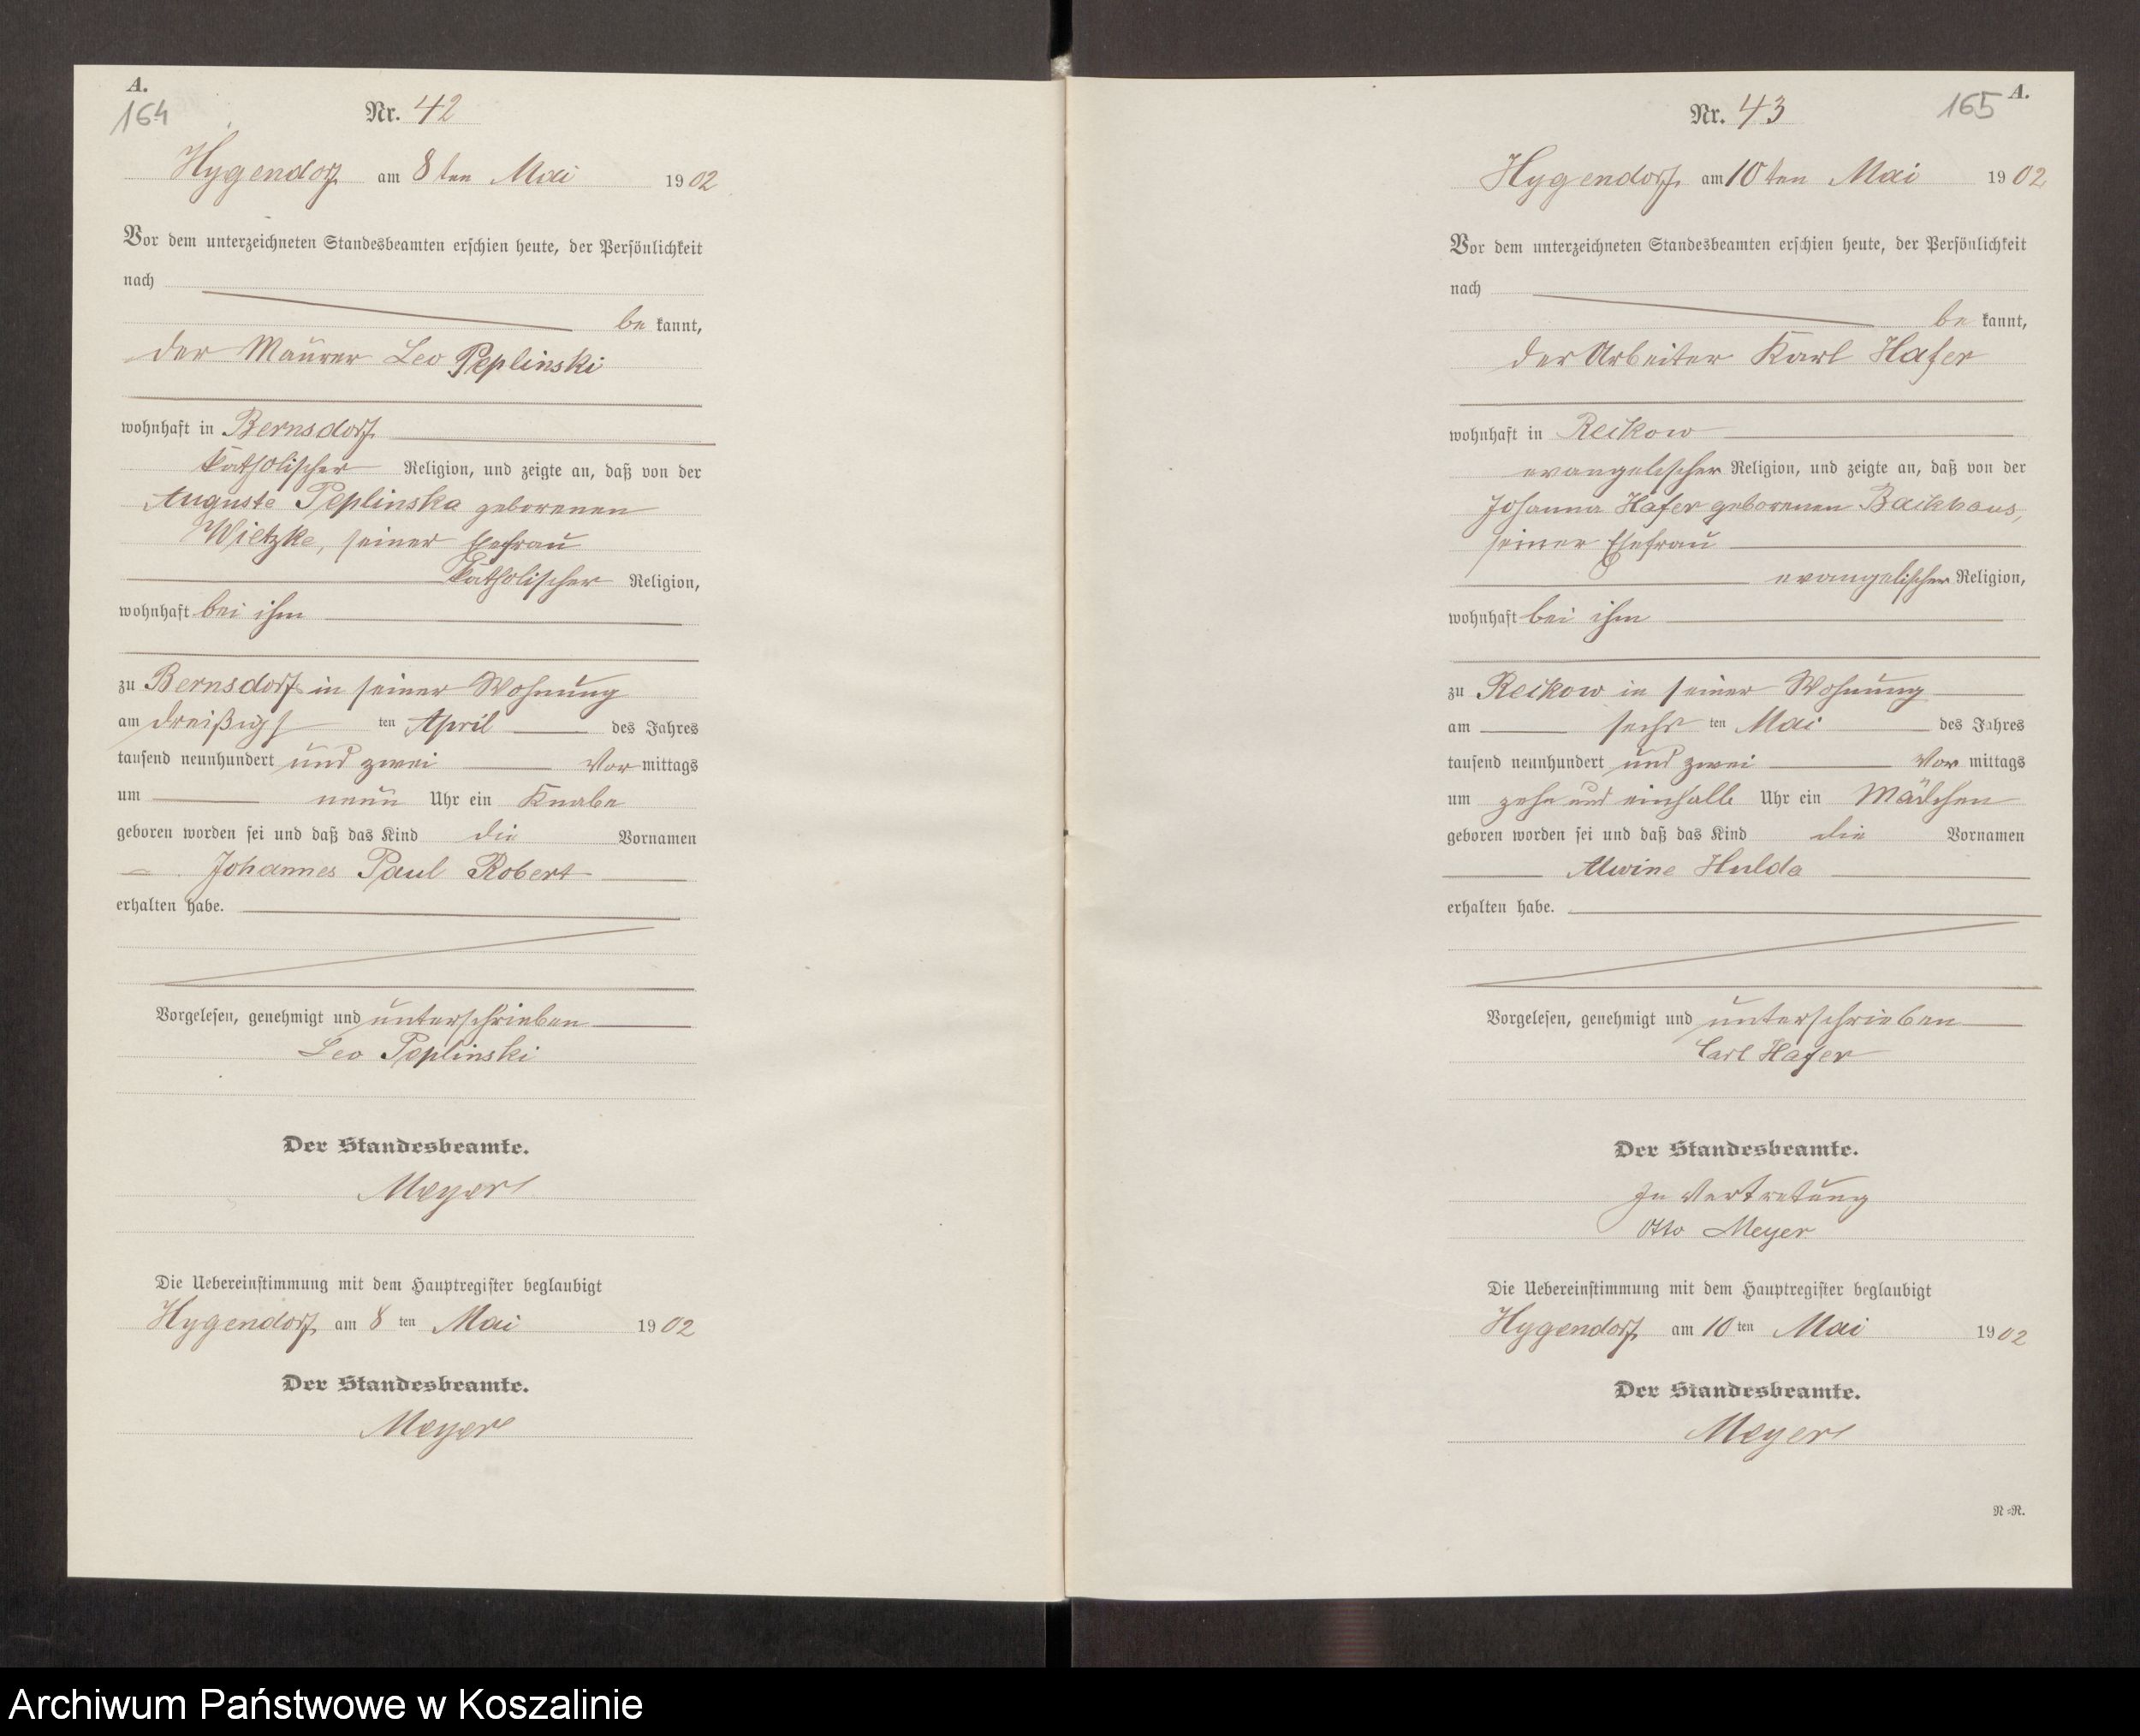 A.
164
Nr. 42
Hygendorf am 8ten Mai 1902
Vor dem unterzeichneten Standesbeamten erschien heute, der Persönlichkeit
nach
be kannt,
der Maurer Leo Peplinski
wohnhaft in Bernsdorf
katholischer Religion, und zeigte an, daß von der
Auguste Peplinska geborenen
Wietzke, seiner Ehefrau
katholischer Religion,
wohnhaft bei ihm
zu Bernsdorf in seiner Wohnung
am dreißigs ten April des Jahres
tausend neunhundert und zwei Vor mittags
um neun Uhr ein Knabe
geboren worden sei und daß das Kind die Vornamen
Johannes Paul Robert
erhalten habe.
Vorgelesen, genehmigt und unterschrieben
Leo Peplinski
Der Standesbeamte.
Meyer
Die Uebereinstimmung mit dem Hauptregister beglaubigt
Hygendorf am 8 ten Mai 1902
Der Standesbeamte.
Meyer
165 A.
Nr. 43
Hygendorf am 10ten Mai 1902
Vor dem unterzeichneten Standesbeamten erschien heute, der Persönlichkeit
nach
be kannt,
der Arbeiter Karl Hafer
wohnhaft in Reikow
evangelischer Religion, und zeigte an, daß von der
Johanna Hafer geborenen Backhaus,
seiner Ehefrau
evangelischer Religion,
wohnhaft bei ihm
zu Reikow in seiner Wohnung
am sechs ten Mai des Jahres
tausend neunhundert und zwei Vor mittags
um zehn und einhalb Uhr ein Mädchen
geboren worden sei und daß das Kind die Vornamen
Alwine Hulda
erhalten habe.
Vorgelesen, genehmigt und unterschrieben
Carl Hafer
Der Standesbeamte.
In Vertretung
Otto Meyer
Die Uebereinstimmung mit dem Hauptregister beglaubigt
Hygendorf am 10 ten Mai 1902
Der Standesbeamte.
Meyer
N=R.
Archiwum Państwowe w Koszalinie